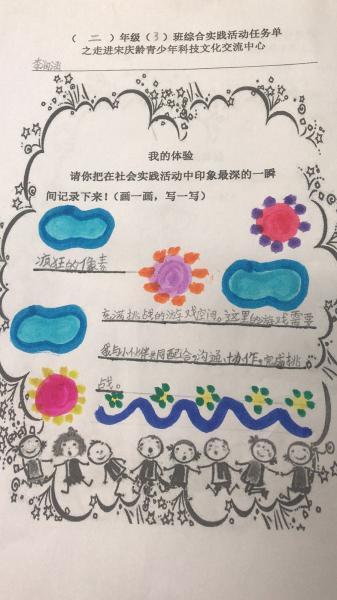 （ 二 ）年级（3）班综合实践活动任务单
之走进宋庆龄青少年科技文化交流中心
我的体验
请你把在社会实践活动中印象最深的一瞬
间记录下来！（画一画，写一写）
疯狂的像素
充满挑战的游戏空间。这里的游戏需要
我与小伙伴共同配合，沟通协作，完成挑
战。